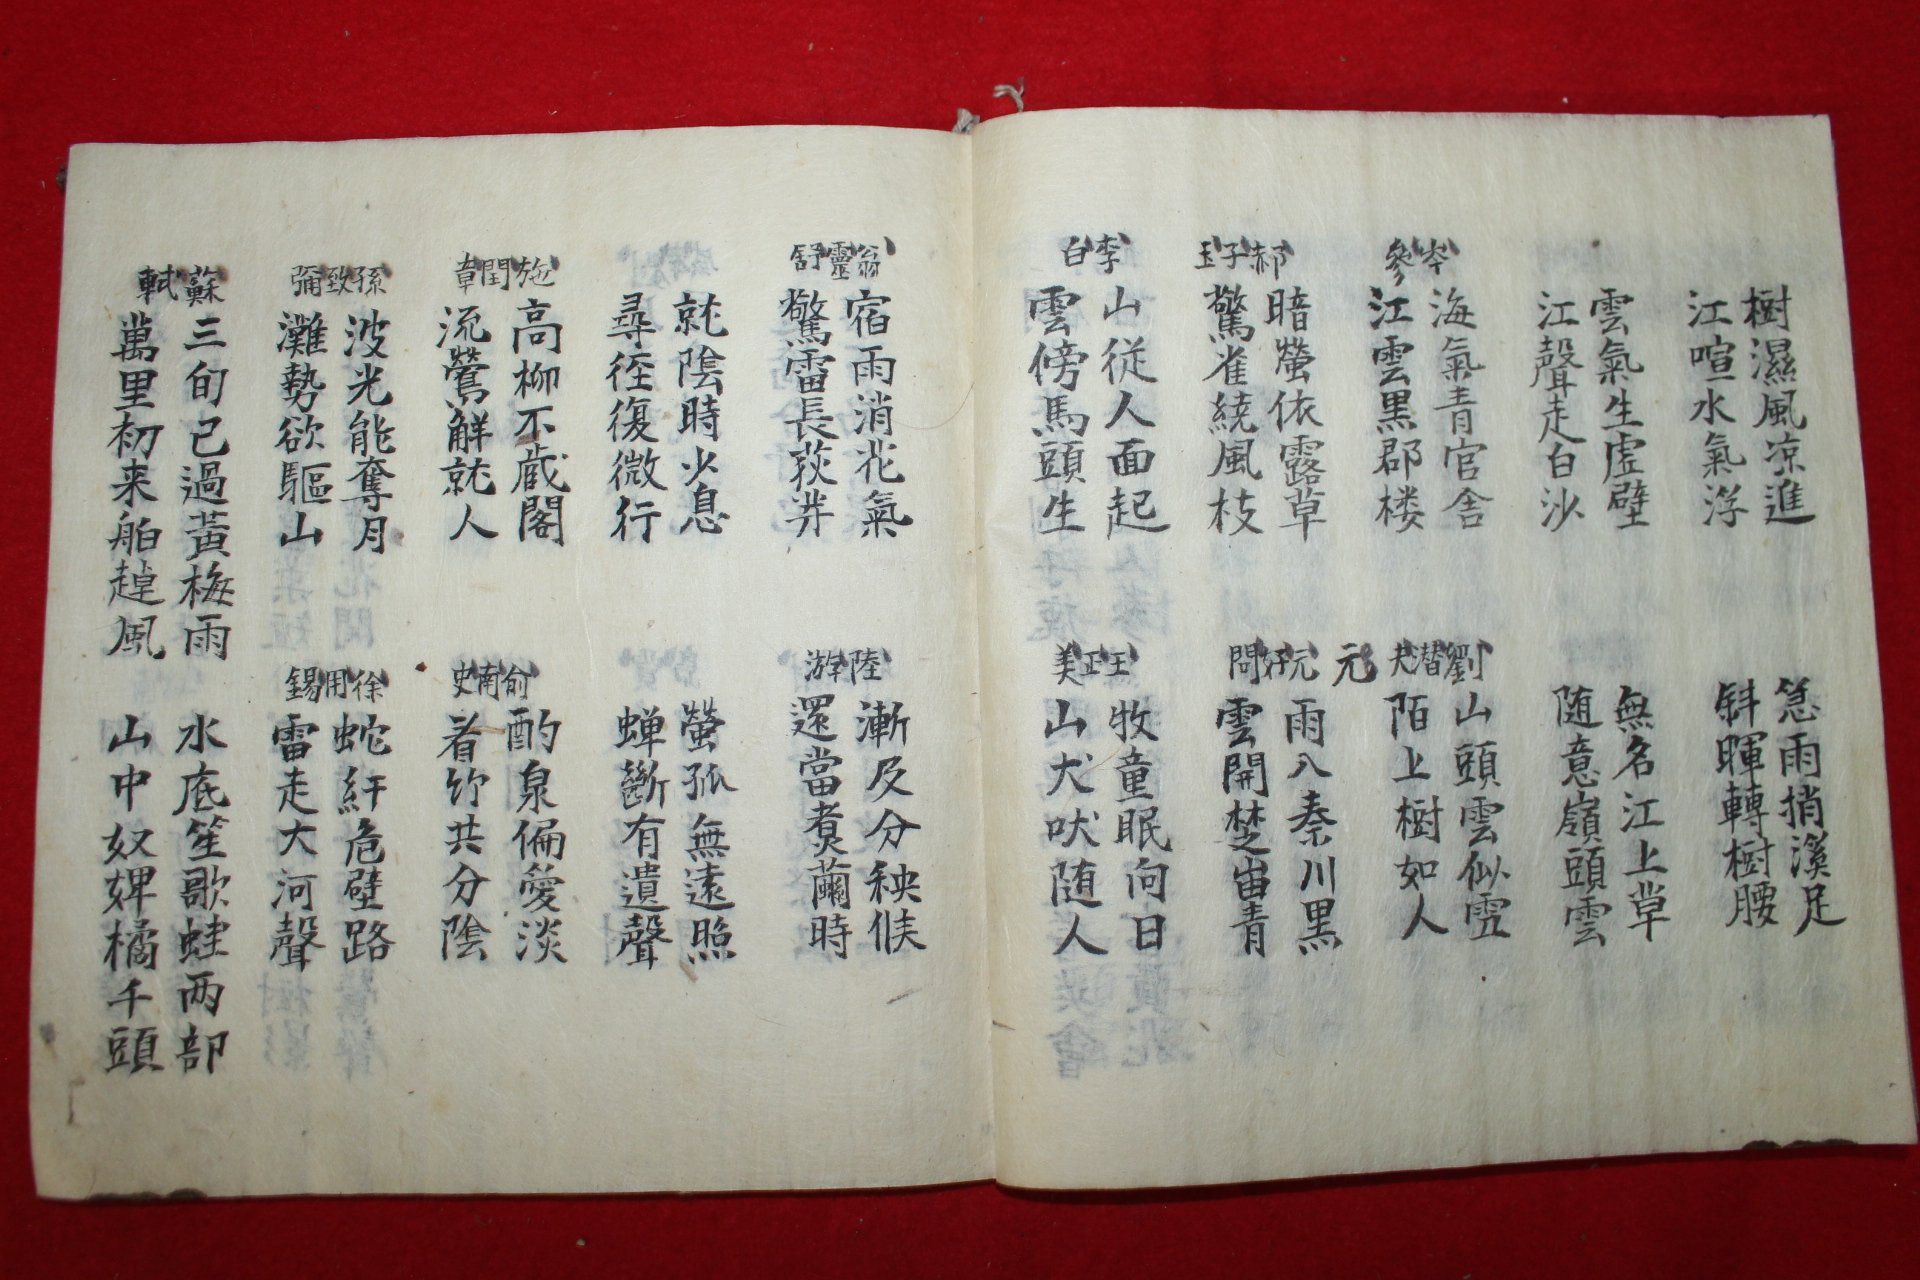 樹濕風凉進
江喧水氣浮
急雨捎溪足
斜暉轉樹腰
雲氣生虛壁
江聲走白沙
無名江上草
随意嶺頭雲
岑參
海氣青官舍
江雲黒郡楼
劉潛夫
山頭雲似雪
陌上樹如人
郝子玉
暗螢依露草
驚雀繞風枝
元
元好問
雨入秦川黒
雲開楚岫青
李白
山從人面起
雲傍馬頭生
王正美
牧童眠向日
山犬吠随人
翁靈舒
宿雨消花氣
驚雷長荻芽
陸游
漸及分秧候
還當煮繭時
就陰時少息
尋徑復微行
螢孤無遠照
蝉斷有遺聲
施閏章
高柳不藏閣
流鶯解就人
俞南史
酌泉偏愛淡
看竹共分陰
孫致彌
波光能奪月
灘勢欲驅山
徐用錫
蛇紆危壁路
雷走大河聲
蘇軾
三旬已過黃梅雨
萬里初来舶趠風
水底笙歌蛙兩部
山中奴婢橘千頭